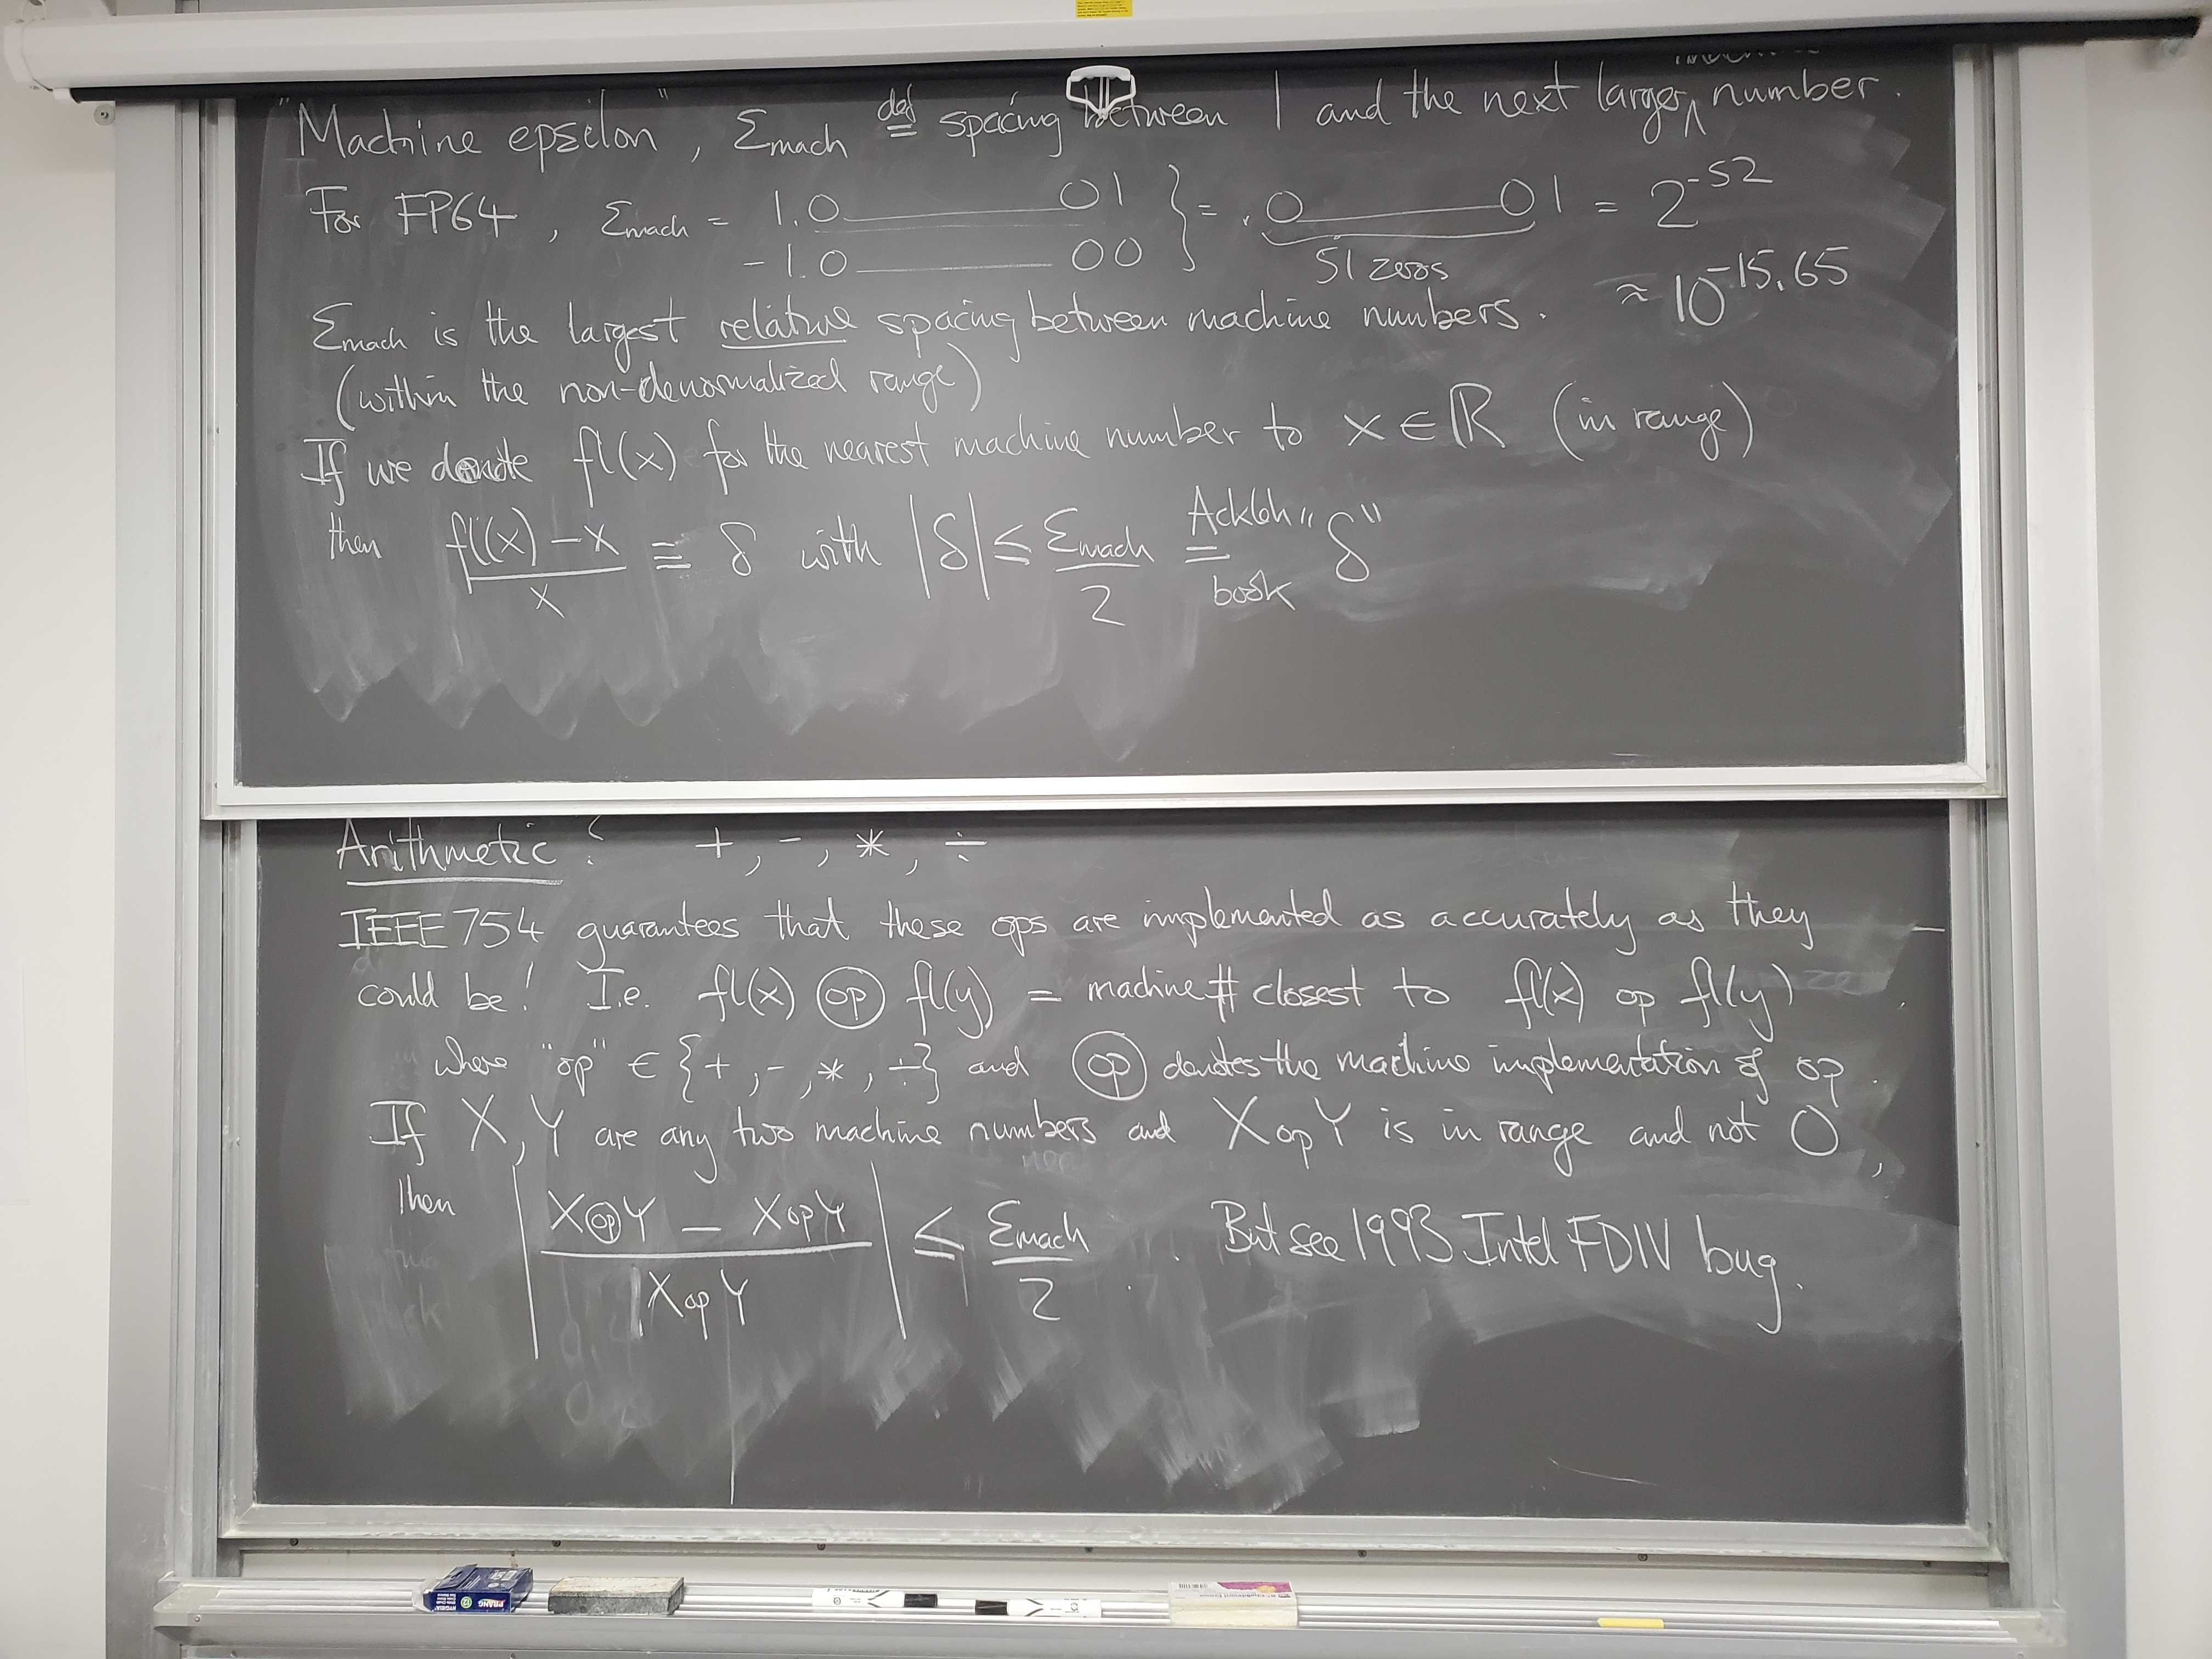 "Machine epsilon", Ɛmach def= spacing between 1 and the next larger ∧ number.
For FP64, Ɛmach = 1.0————01 } = .0————01 = 2^-52
-1.0————00
51 zeros
≈ 10^-15.65
Ɛmach is the largest relative spacing between machine numbers.
(within the non-denormalized range)
If we denote fl(x) for the nearest machine number to x ∈ ℝ (in range)
then (fl(x) - x)/x ≡ δ with |δ| ≤ Ɛmach/2 = "δ"
Ackleh
book
Arithmetic: +, -, *, ÷
IEEE 754 guarantees that these ops are implemented as accurately as they
could be! I.e. fl(x) ⓞⓟ fl(y) = machine # closest to fl(x) op fl(y)
where "op" ∈ {+, -, *, ÷} and ⓞⓟ denotes the machine implementation of op.
If X, Y are any two machine numbers and X op Y is in range and not 0,
then |(X ⓞⓟ Y - X op Y)/(X op Y)| ≤ Ɛmach/2. But see 1993 Intel FDIV bug.
PRANG